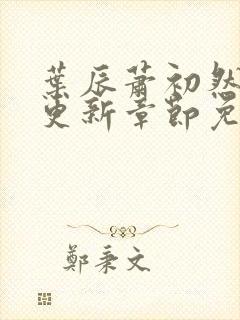 葉辰蕭初然
更新章節免
鄭秉文